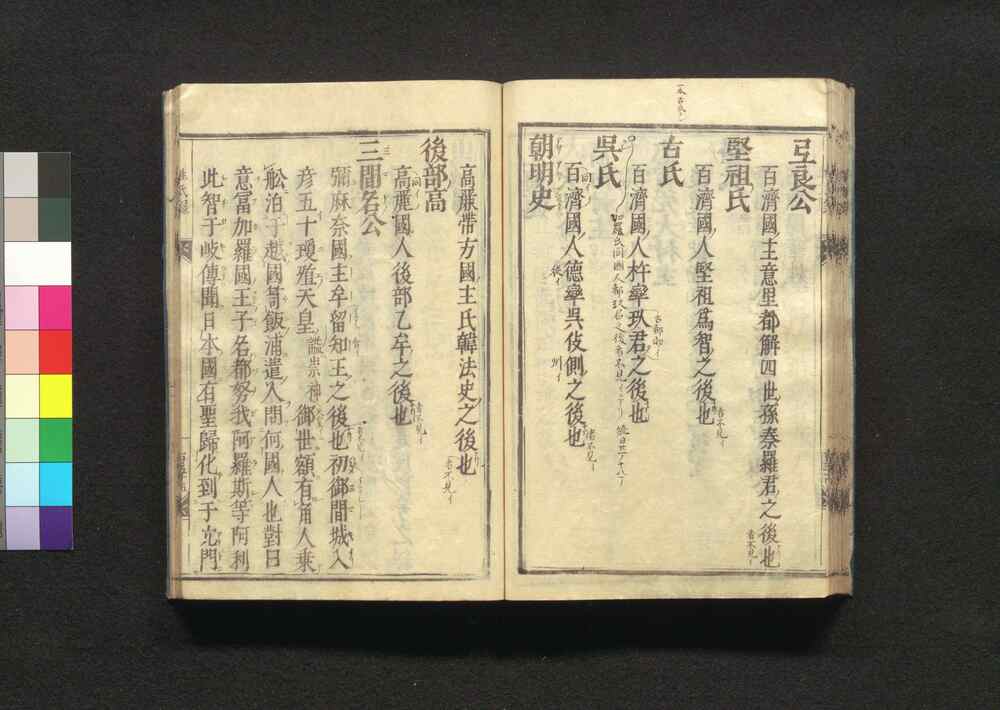 弖良公
百濟國主意里都解四世孫秦羅君之後也
者不見イ
堅祖氏
百濟國人堅祖爲智之後也
者不見イ
古氏
百濟國人杵率玖君之後也
呉氏
百濟國人德率呉伎側之後也
者不見イ
朝明史
高麗帶方國主氏韓法史之後也
者不見イ
後部高
高麗國人後部乙牟之後也
者不見イ
三間名公
彌麻奈國主牟留知王之後也初御間城入
彦五十瓊殖天皇謚崇神御世額有角人乗
舩泊于越國笥飯浦遣人問何國人也對曰
意冨加羅國王子名都努我阿羅斯等阿利
此智于岐傳聞日本國有聖歸化到于穴門
姓氏録